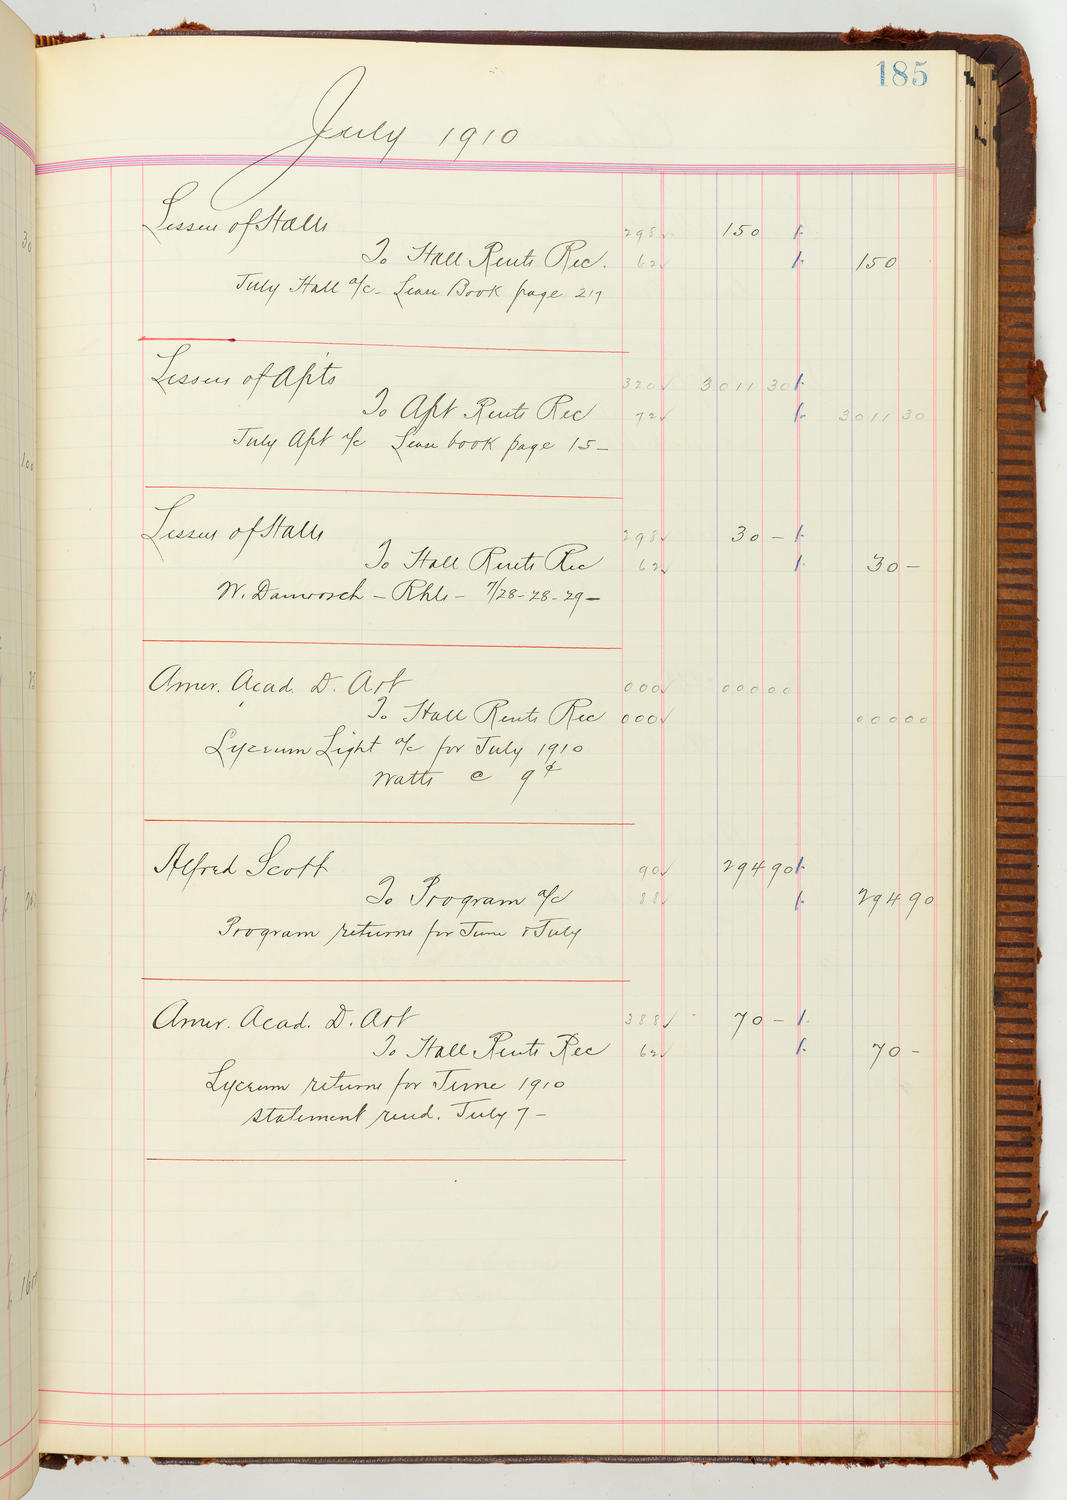 185
July 1910
Lessees of Halls 298 150
To Hall Rents Rec. 62 150
July Hall a/c - Lease Book page 217
Lessees of Apts 320 3011 30
To Apt Rents Rec 72 3011 30
July Apt a/c Lease book page 15-
Lessees of Halls 298 30 -
To Hall Rents Rec 62 30 -
W. Damrosch - Rhls - 7/28-28-29-
Amer. Acad. D. Art 000 000 00
To Hall Rents Rec 000 000 00
Lyceum Light a/c for July 1910
Watts @ 9¢
Alfred Scott 90 294 90
To Program a/c 88 294 90
Program returns for June & July
Amer. Acad. D. Art 388 70 -
To Hall Rents Rec 62 70 -
Lyceum returns for June 1910
statement rend. July 7 -